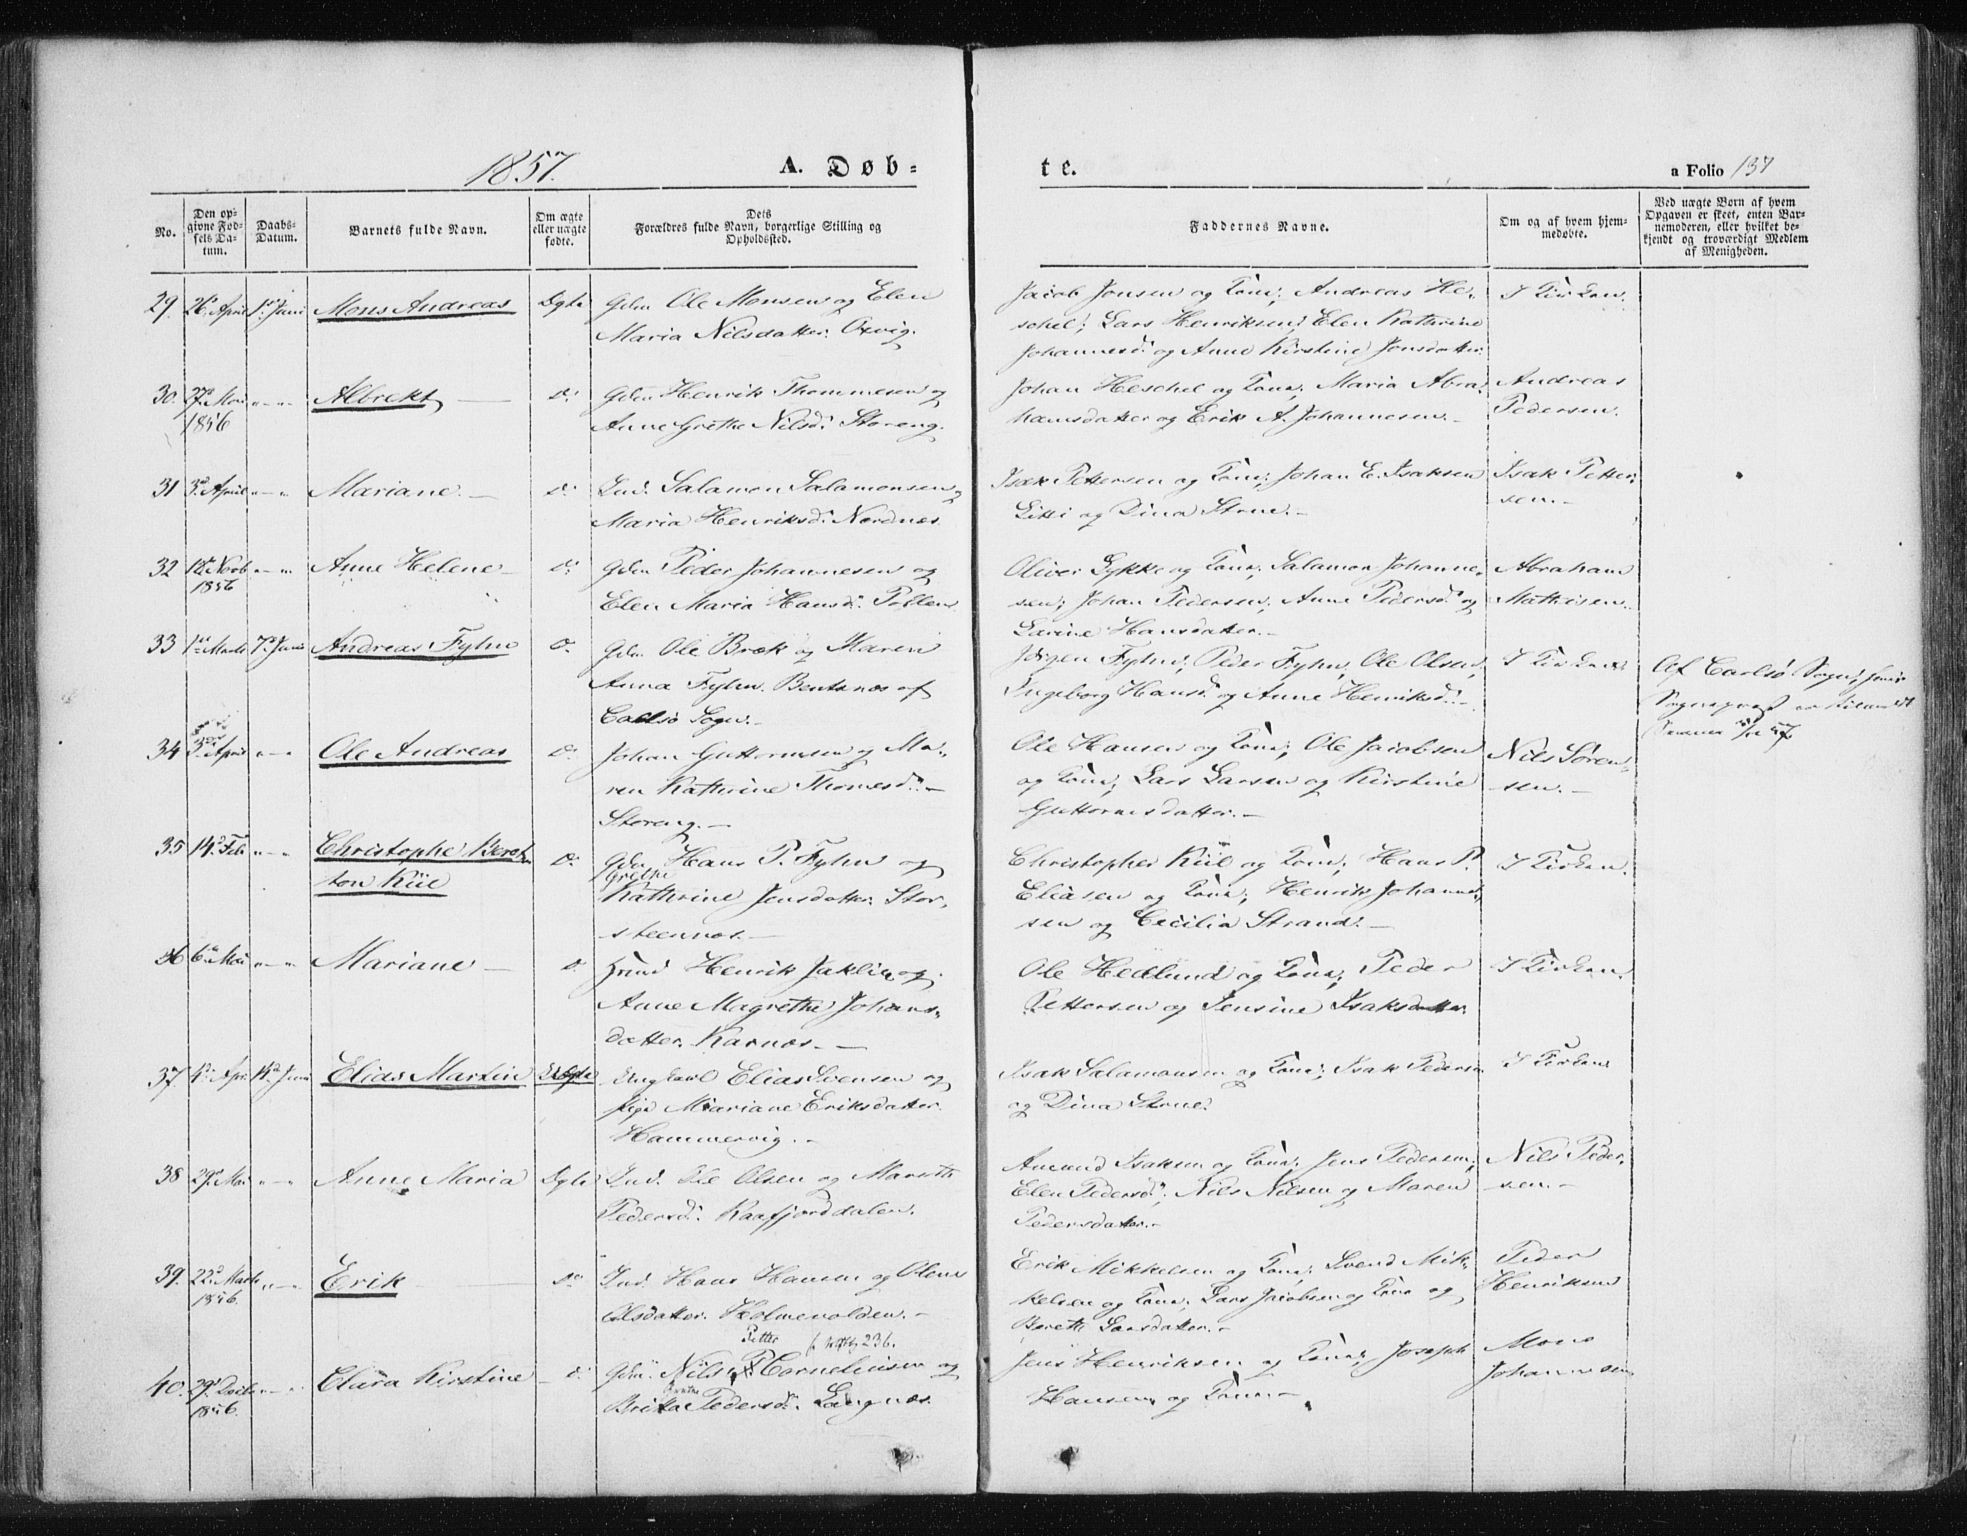 1857. A. Døb-
te. a Folio 137
No.
Den op-
givne Fød-
sels Da-
tum.
Daabs-
Datum.
Barnets fulde Navn.
Om ægte
eller uægte
fødte.
Dets
Forældres fulde Navn, borgerlige Stilling og
Opholdssted.
Faddernes Navne.
Om og af hvem hjem-
medøbte.
Ved uægte Børn af hvem
Opgaven er skeet, enten Bar-
nemoderen, eller hvilket be-
kjendt og troværdigt Medlem
af Menigheden.
29. 26. April 1. Juni Mons Andreas Ægte Gdm Ole Monsen og Elen
Maria Nilsdatter. Oxvig.
Jacob Jonsen og Kone; Andreas He-
schel; Lars Henriksen; Elen Kathrine
Johannesd. og Anne Kirstine Jonsdatter.
I Kirken.
30. 27. Mai
1856
Albrekt — do Gdm Henrik Thommesen og
Anne Grethe Nilsd. Storeng.
Johan Heschel og Kone; Maria Abra-
hamsdatter og Erik A. Johannesen.
Andreas
Pedersen.
31 3. April Mariane — do Ind. Salamon Salamonsen og
Maria Henriksd. Nordnæs.
Isak Pettersen og Kone; Johan E. Isaksen
Litti og Dina Strue.
Isak Petter-
sen.
32 12. Novb
1856
Anne Helene — do Gdm Peder Johannesen og
Elen Maria Hansd. Pollen.
Oliver Lykke og Kone; Salamon Johanne-
sen; Johan Pedersen; Anne Pedersd. og
Larine Hansdatter.
Abraham
Mathisen.
33 1. Marts 7. Juni Andreas Fyhn do Gdm Ole Bræk og Maren
Anna Fyhn. Bentsnæs af
Carlsø Sogn.
Jørgen Fyhn; Peder Fyhn; Ole Olsen;
Ingeborg Hansd. og Anne Henriksd.
I Kirken
Af Carlsø Sogn;
34 3. April Ole Andreas do Johan Guttormsen og Ma-
ren Kathrine Thomesd.
Storeng.
Ole Hansen og Kone; Ole Jacobsen
og Kone; Lars Larsen og Kirstine
Guttormsdatter.
Nils Søren-
sen.
35 14. Feb Christophe Kerst
ton Kiil
do Gdm Hans P. Fyhn og
Grethe
Kathrine Jensdatter. Stor-
steennæs.
Christopher Kiil og Kone; Hans P.
Eliasen og Kone; Henrik Johanne-
sen og Cecilia Strand.
I Kirken.
36 6. Mai Mariane — do Henrik Jaklin og
Anne Magrethe Johans-
datter. Karnæs.
Ole Hedlund og Kone; Peder
Pettersen og Jensine Isaksdatter
I Kirken.
37 4. Apr. 14. Juni Elias Martin Uægte Ungkarl Elias Svensen og
Pige Mariane Eriksdatter.
Hammervig.
Isak Salamonsen og Kone; Isak Pedersen
og Dina Strue.
I Kirken
38 29. Mai Anne Maria Ægte Ind. Ole Olsen og Mareth
Pedersd. Kaafjorddalen.
Amund Isaksen og Kone; Jens Pedersen;
Elen Pedersd; Nils Nilsen og Maren
Pedersdatter.
Nils Peder-
sen.
39. 22. Marts
1856.
Erik do Ind. Hans Hansen og Olena
Olsdatter. Holmevolden.
Erik Mikkelsen og Kone; Svend Mik-
kelsen og Kone; Lars Jacobsen og Kone og
Bereth Larsdatter.
Peder
Henriksen
40. 29. Decb
1856.
Clara Kirstine — do Gdm Nils P. Corneliusen og
Petter 236.
Brita Pedersd. Langnæs.
Jens Henriksen og Kone; Joseph
Hansen og Kone.
Mons
Johannesen